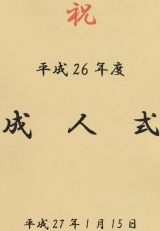 祝
平成26年度
成人式
平成27年1月15日